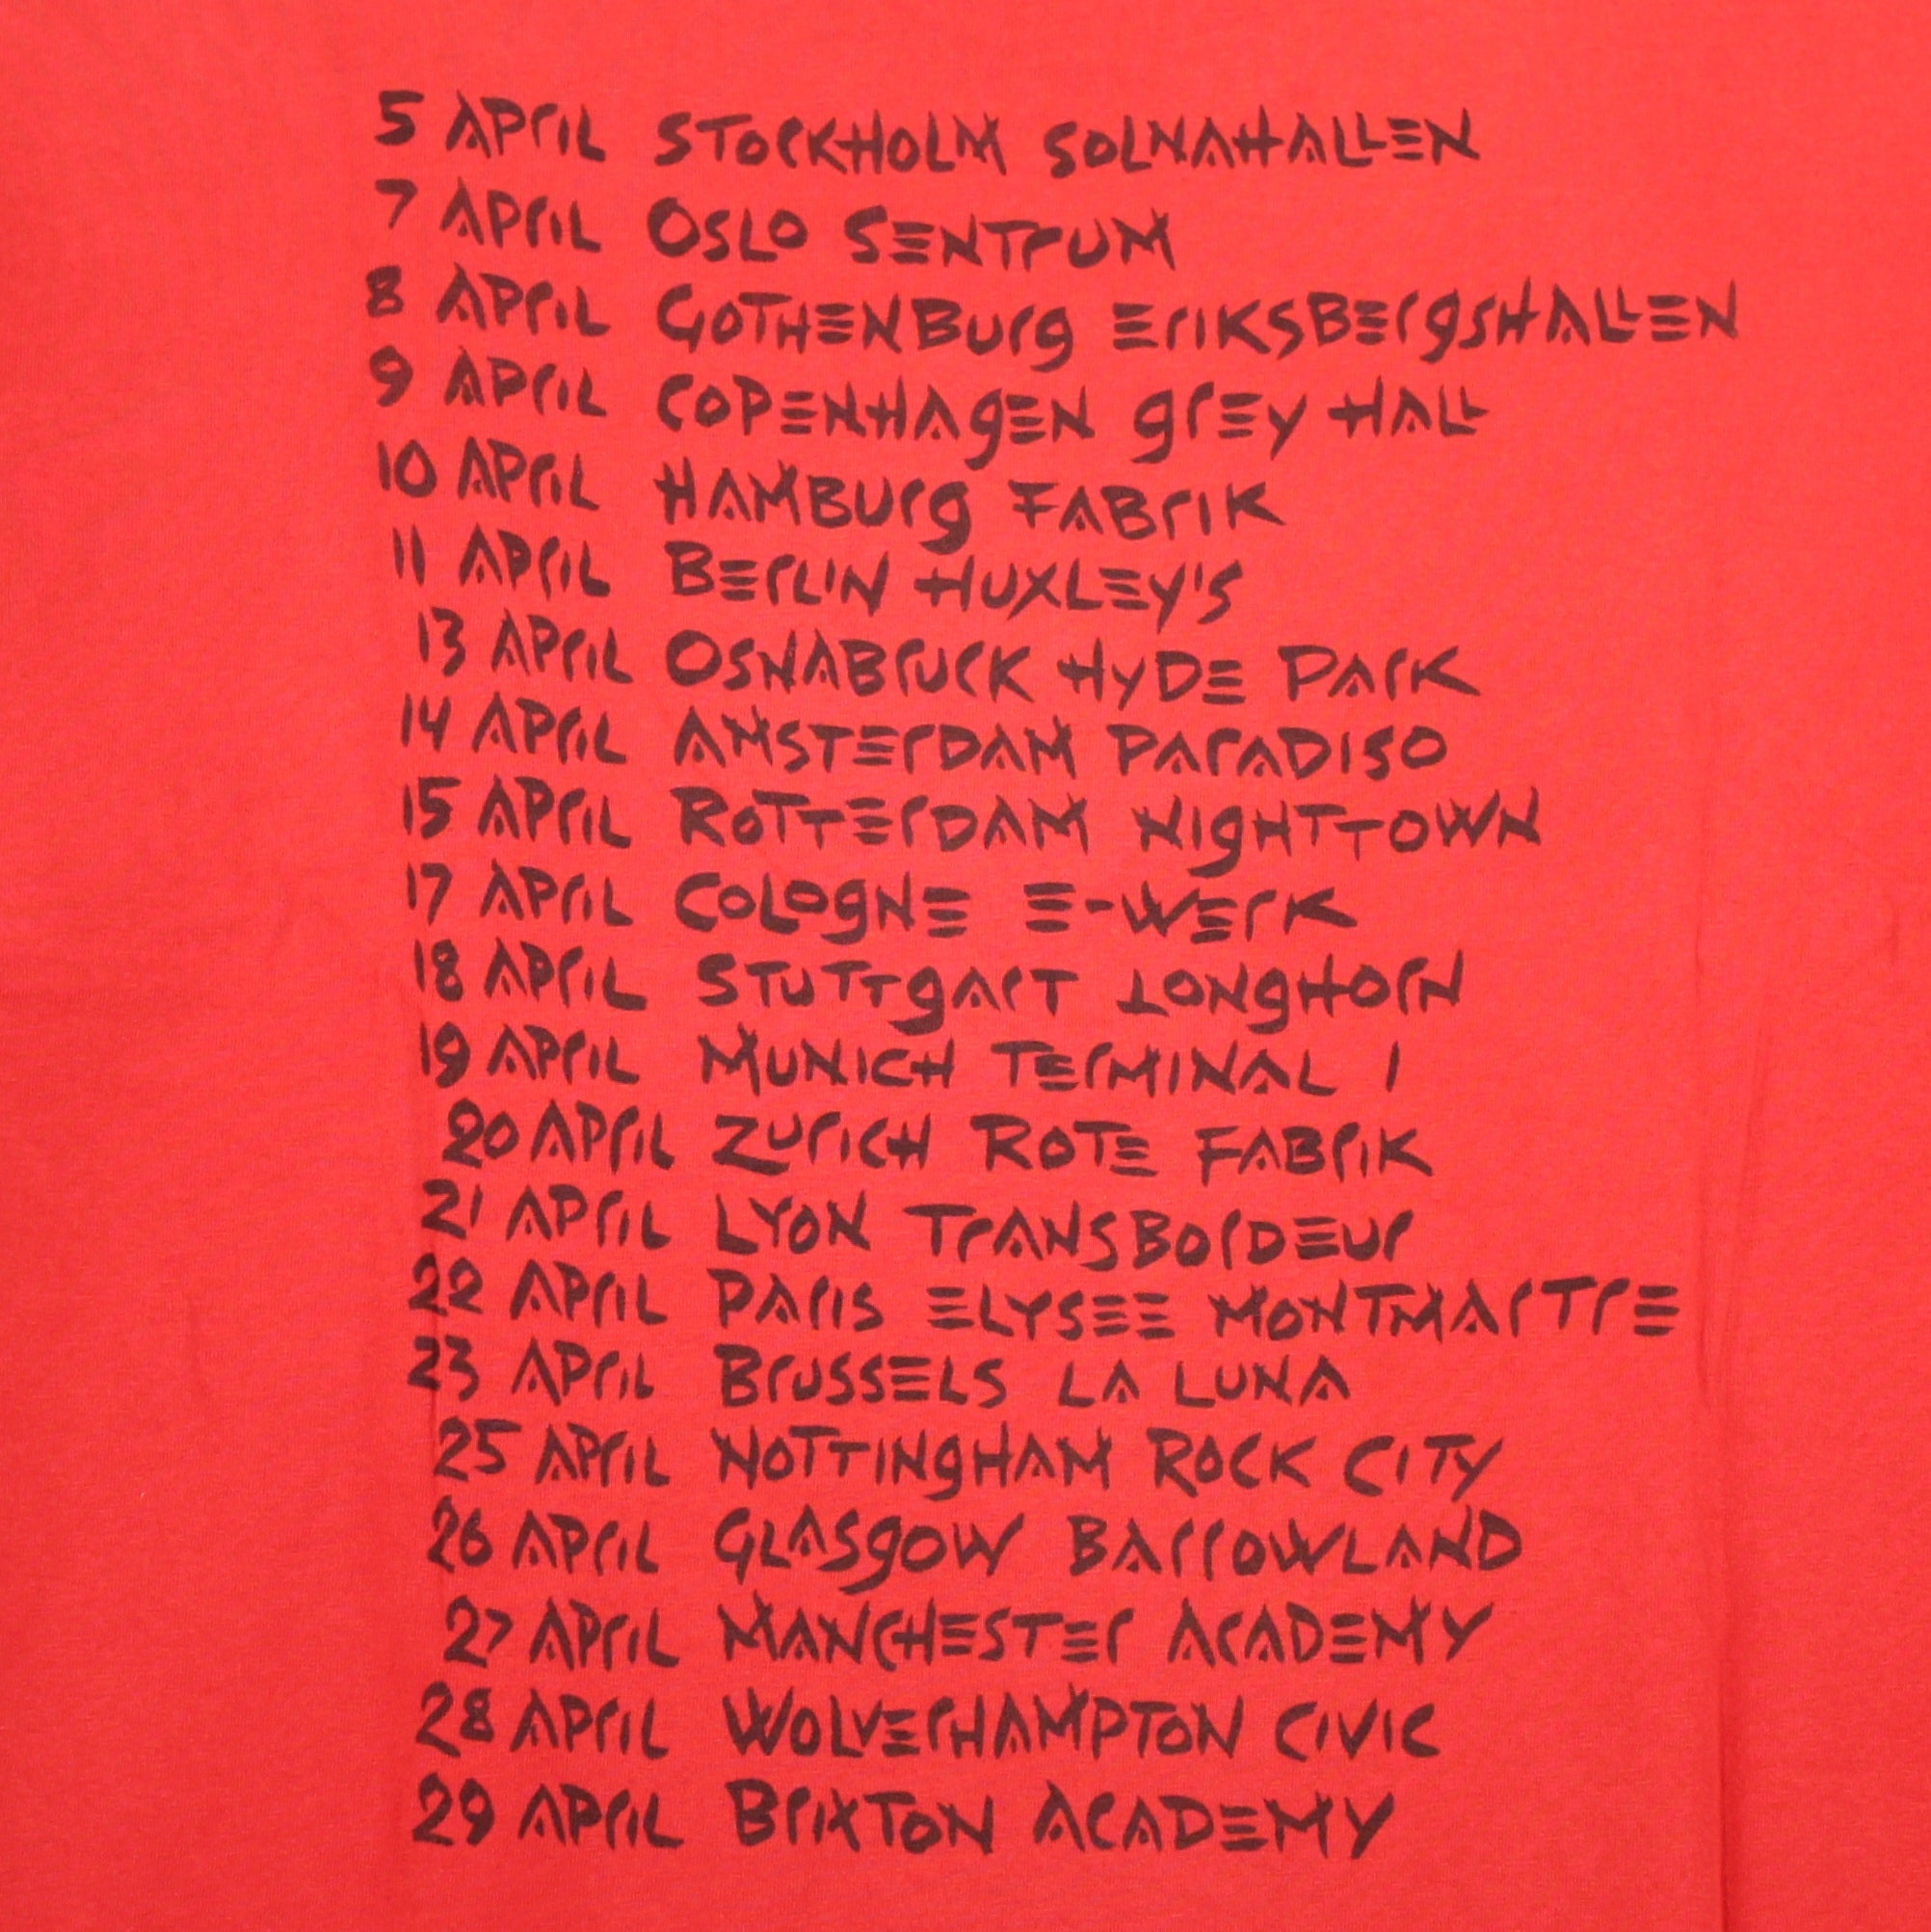 5 APRIL STOCKHOLM SOLNAHALLEN
7 APRIL OSLO SENTRUM
8 APRIL GOTHENBURG ERIKSBERGSHALLEN
9 APRIL COPENHAGEN GREY HALL
10 APRIL HAMBURG FABRIK
11 APRIL BERLIN HUXLEY'S
13 APRIL OSNABRUCK HYDE PARK
14 APRIL AMSTERDAM PARADISO
15 APRIL ROTTERDAM NIGHTTOWN
17 APRIL COLOGNE E-WERK
18 APRIL STUTTGART LONGHORN
19 APRIL MUNICH TERMINAL 1
20 APRIL ZURICH ROTE FABRIK
21 APRIL LYON TRANSBORDEUR
22 APRIL PARIS ELYSEE MONTMARTRE
23 APRIL BRUSSELS LA LUNA
25 APRIL NOTTINGHAM ROCK CITY
26 APRIL GLASGOW BARROWLAND
27 APRIL MANCHESTER ACADEMY
28 APRIL WOLVERHAMPTON CIVIC
29 APRIL BRIXTON ACADEMY